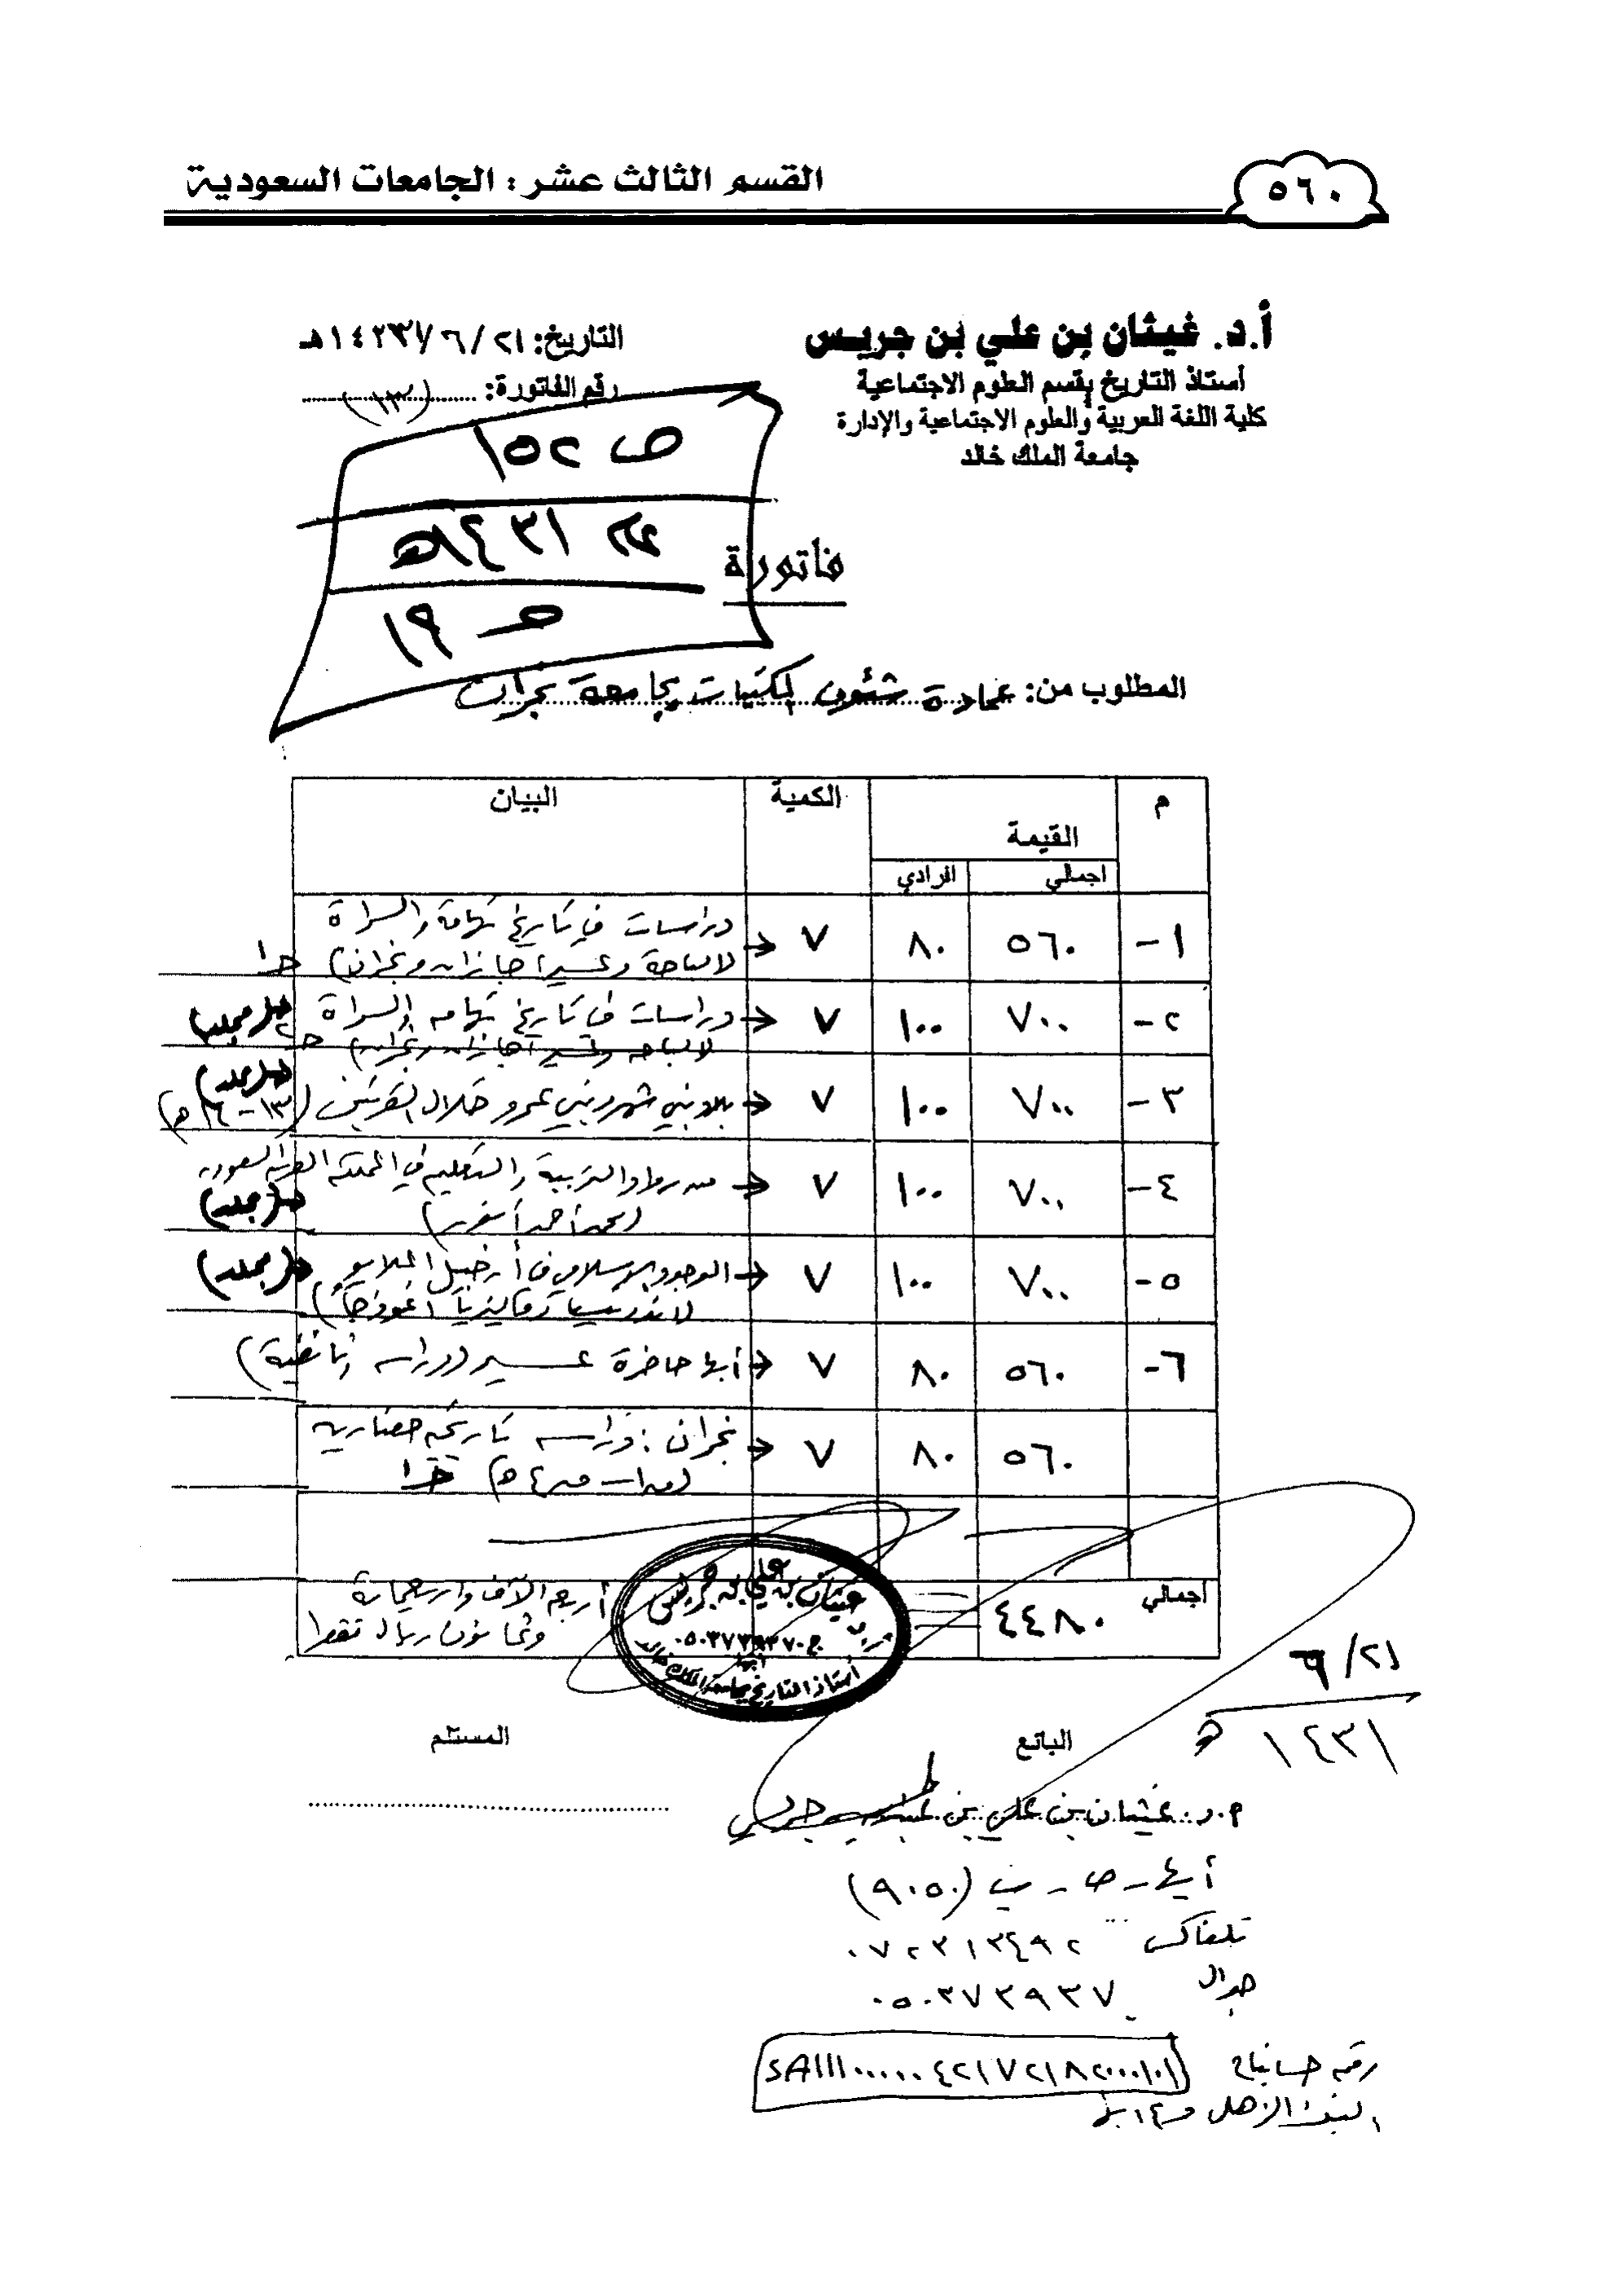 القسم الثالث عشر : الجامعات السعودية
٥٦٠
أ.د. غيثان بن علي بن جريس
أستاذ التاريخ بقسم العلوم الاجتماعية
كلية اللغة العربية والعلوم الاجتماعية والإدارة
جامعة الملك خالد
التاريخ: ٢١/ ٦ /١٤٣١هـ
رقم الفاتورة:
ص ١٥٢
١٤٣١هـ
١٩
فاتورة
المطلوب من: عمادة شئون المكتبات بجامعة نجران
م القيمة الكمية البيان
اجمالي افرادي
١- ٥٦٠ ٨٠ ٧ دراسات في تاريخ تهامة والسراة
(الباحة وعسير، جازان، ونجران) جـ ١
٢- ٧٠٠ ١٠٠ ٧ دراسات في تاريخ تهامة والسراة (مجلد)
(الباحة وعسير، جازان، ونجران) جـ٢
٣- ٧٠٠ ١٠٠ ٧ بلاد بني شهر وبني عمرو خلال القرنين (١٣-١٤هـ) (مجلد)
٤- ٧٠٠ ١٠٠ ٧ من رواد التربية والتعليم في المملكة العربية السعودية
(محمد أحمد أنور) (مجلد)
٥- ٧٠٠ ١٠٠ ٧ الوجود الإسلامي في أرخبيل الملايو (مجلد)
(اندونيسيا وماليزيا أنموذجاً)
٦- ٥٦٠ ٨٠ ٧ أبها حاضرة عسير (دراسة وثائقية)
٥٦٠ ٨٠ ٧ نجران : دراسة تاريخية حضارية
(ق١- ق٤هـ) جـ١
اجمالي ٤٤٨٠ أربع الآف وأربعمائة
وثمانون ريال فقط
غيثان بن علي بن جريس
أبها
أستاذ التاريخ بجامعة الملك خالد
٢١/ ٦
١٤٣١ هـ
البائع المستلم
أ.د. غيثان بن علي بن جريس
أبها - ص . ب (٩٠٥٠)
تلفاكس ٠٧٢٣١٣٤٩٢
جوال
رقم حساب
البنك الأهلي